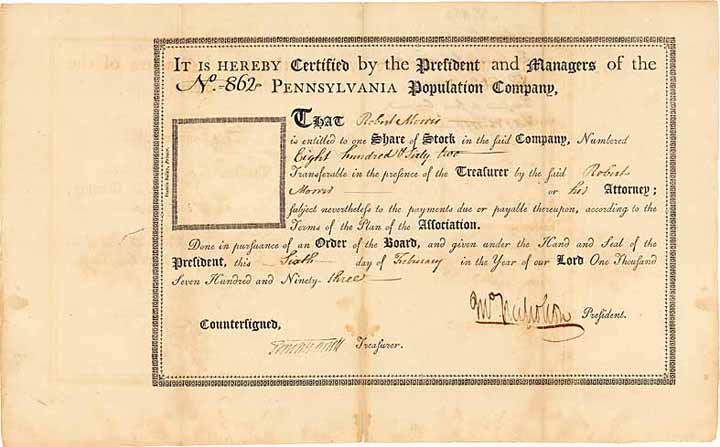 IT IS HEREBY Certified by the President and Managers of the
No. 862 PENNSYLVANIA Population Company,
THAT Robert Morris
is entitled to one Share of Stock in the said Company, Numbered
Eight hundred & Sixty two
Transferable in the presence of the Treasurer by the said Robert
Morris or his Attorney;
subject nevertheless to the payments due or payable thereupon, according to the
Terms of the Plan of the Association.
Done in pursuance of an Order of the Board, and given under the Hand and Seal of the
President, this Sixth day of February in the Year of our Lord One Thousand
Seven Hundred and Ninety-three
Jno. Nicholson President.
Countersigned,
Treasurer.